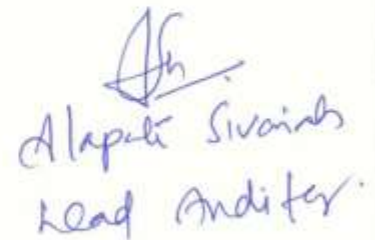 Alapati Sivaiah
Lead Auditor.